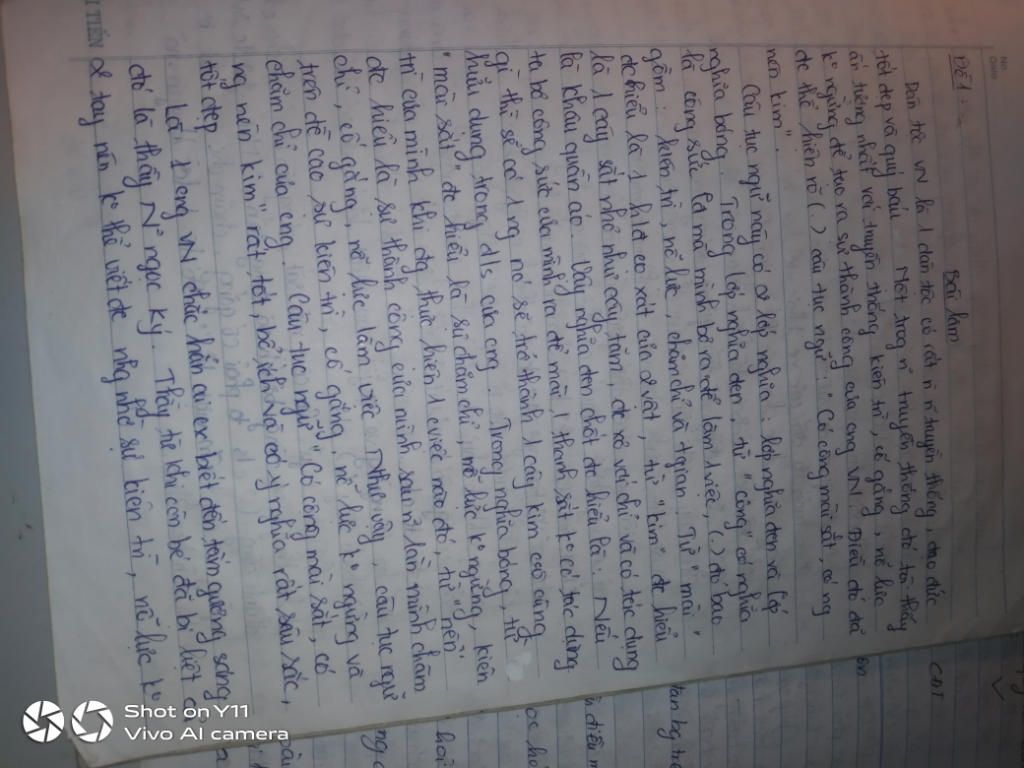 No
Date
Đề 1:
Bài làm
Dân tộc VN là 1 dân tộc có rất n` truyền thống, đạo đức
tốt đẹp và quý báu. Một trog n~ truyền thống đó tôi thấy
ấn tượng nhất với truyền thống kiên trì, cố gắng, nỗ lực
kº ngừng để tạo ra sự thành công của ông VN. Điều đó đã
đc thể hiện rõ ( ) câu tục ngữ: "Có công mài sắt, có ng
nên kim".
Câu tục ngữ này có 2 lớp nghĩa: lớp nghĩa đen và lớp
nghĩa bóng. Trong lớp nghĩa đen, từ "công" có nghĩa
là công sức là mà mình bỏ ra để làm 1 việc, ( ) đó bao
gồm: kiên trì, nỗ lực, chăm chỉ và tgian. Từ "mài"
đc hiểu là 1 hđ cọ xát của 2 vật, từ "kim" đc hiểu
là 1 cây sắt nhỏ như cây tăm, đc xỏ với chỉ và có tác dụng
là khâu quần áo. Vậy nghĩa đen chốt đc hiểu là: Nếu
ta bỏ công sức của mình ra để mài 1 thanh sắt kº có tác dụng
gì thì sẽ có 1 ng nó sẽ trở thành 1 cây kim vô cùng
hữu dụng trong đ/s của cng. Trong nghĩa bóng, từ
"mài sắt" đc hiểu là sự chăm chỉ, nỗ lực kº ngừng, kiên
trì của mình khi đg thực hiện 1 cviệc nào đó, từ "nên
đc hiểu là sự thành công của mình sau n~ lần mình chăm
chỉ, cố gắng, nỗ lực làm việc. Như vậy, câu tục ngữ
trên đề cao sự kiên trì, cố gắng, nỗ lực kº ngừng và
chăm chỉ của cng. Câu tục ngữ "Có công mài sắt, có
ng nên kim" rất tốt, bổ ích và có ý nghĩa rất sâu sắc,
tốt đẹp
Là 1 cng VN chắc hẳn ai cx biết đến tấm gương sáng
đó là thầy N~ Ngọc Ký. Thầy từ khi còn bé đã bị liệt cả
2 tay nên kº thể viết đc nhg nhờ sự kiên trì, nỗ lực kº
I TIẾN
CĐT
Shot on Y11
Vivo AI camera